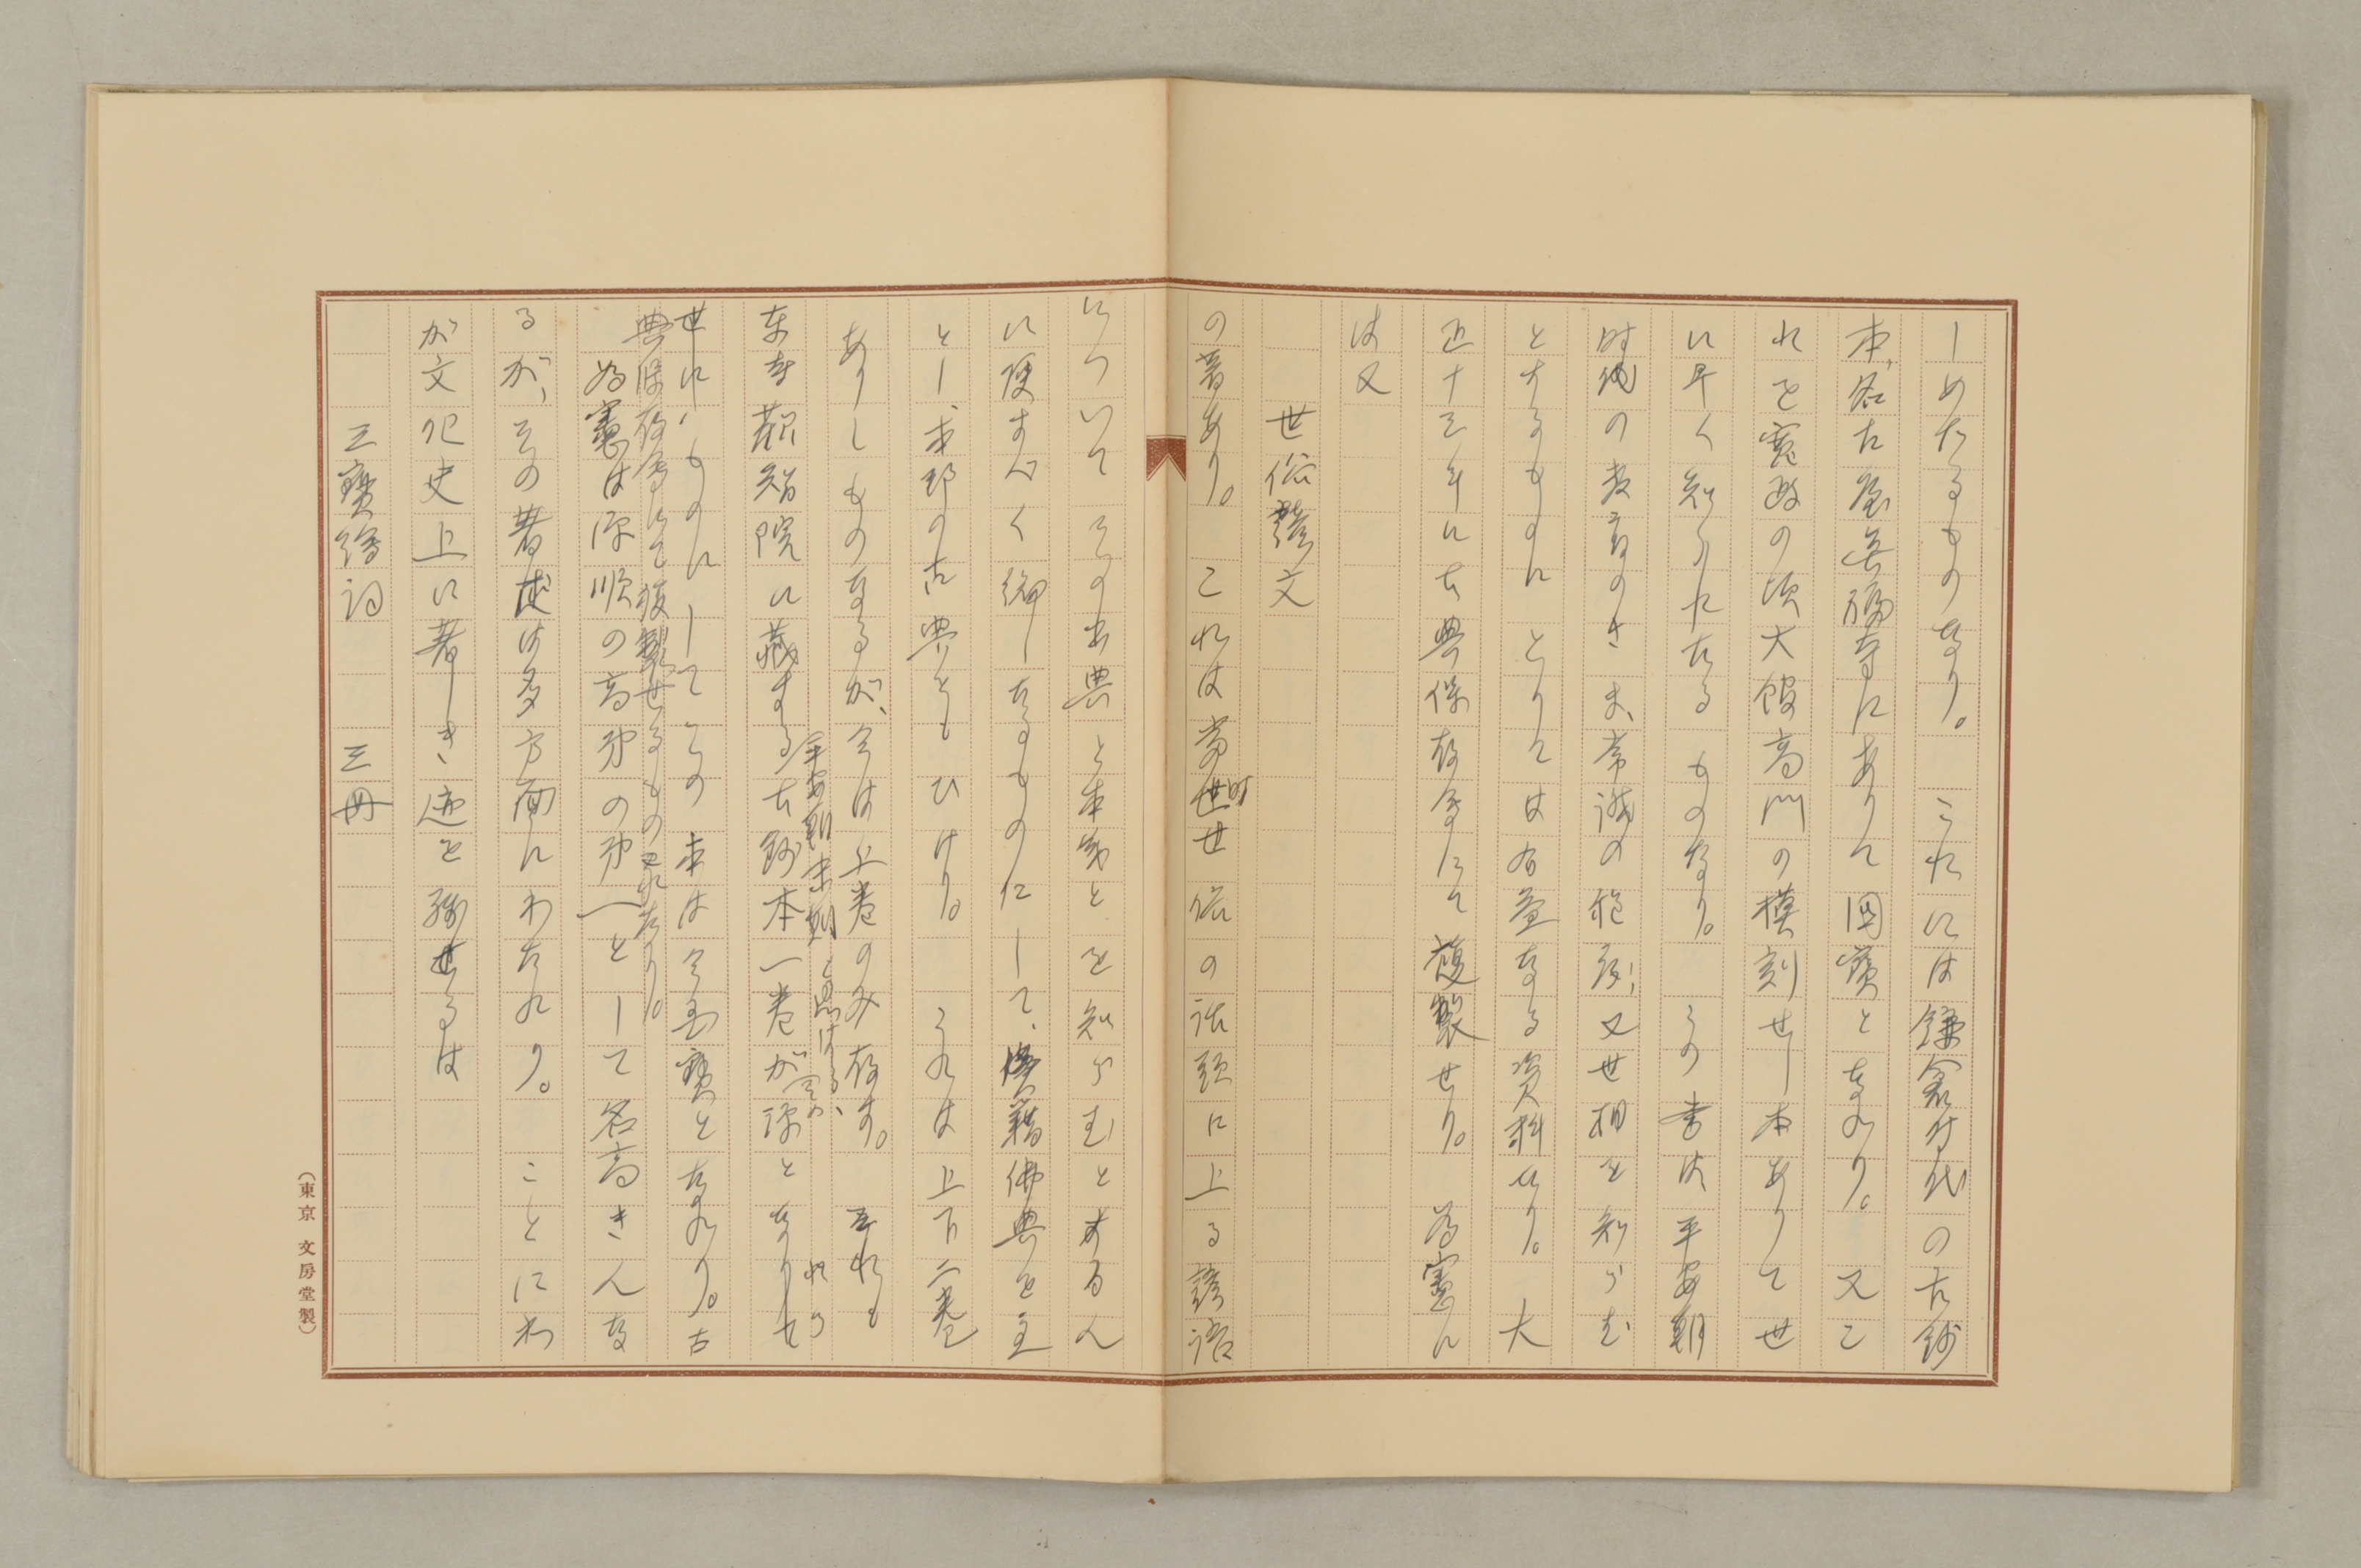 しめたるものなり。これには鎌倉時代の古鈔
本、名古屋眞福寺にありて國寳となれり。又こ
れを寛政の頃大館高門の模刻せし本ありて世
に早く知られたるものなり。この書は平安朝
時代の教育のさま、常識の程度、又世相を知らむ
とするものにとりては有益なる資料なり。大
正十三年に古典保存會にて複製せり。為憲に
は又
世俗諺文
の著あり。これは當時世俗の話頭に上る諺語
についてその出典と本義とを知らむとするに
に便すべく編したるものにして、漢籍佛典を主
とし本邦の古典をもひけり。これは上下二巻
ありしものなるが、今は上巻のみ存す。それも
平安朝末期と思はるゝ
東寺觀智院に藏する古鈔本一巻が源となりて
世にいものにしてこの本は今國寳となれり。古
典保存會にて複製せるものこれなり。
為憲は源順の高弟の弟一として名高き人な
るが、その著述は多方面にわたれり。ことにわ
が文化史上に著しき迹を殘せるは
三寳繪詞 三冊
（東京 文房堂製）